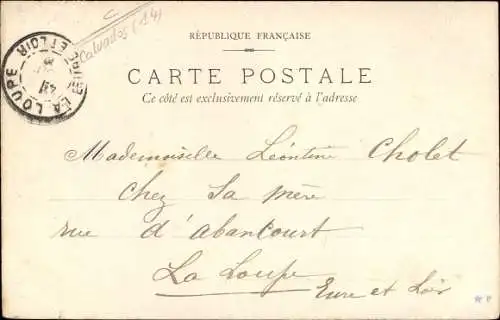 RÉPUBLIQUE FRANÇAISE
CARTE POSTALE
Ce côté est exclusivement réservé à l'adresse
C
Calvados (14)
LA LOUPE
EURE ET LOIR
Mademoiselle Léontine Cholet
Chez Sa mère
rue d'abancourt
La Loupe
Eure et Loir